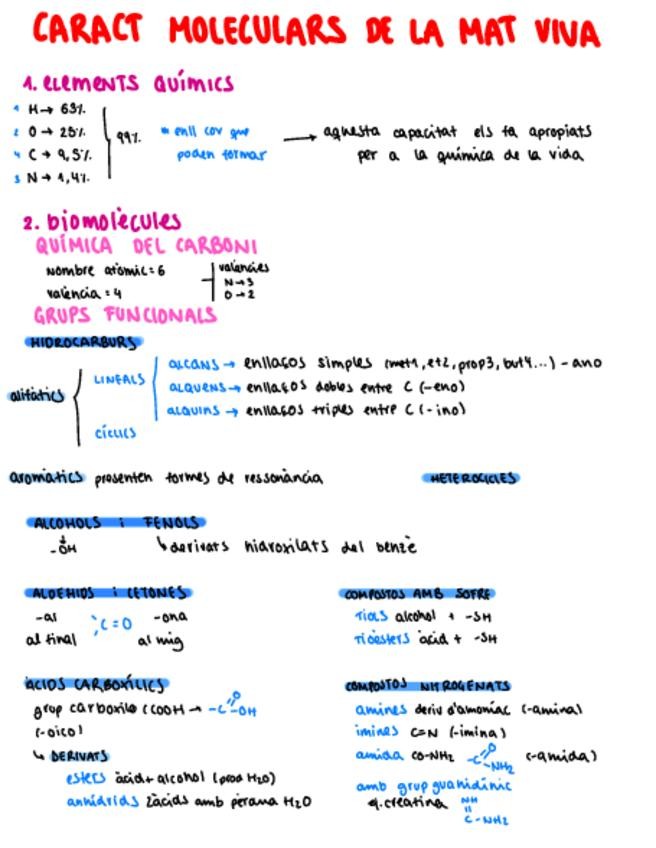 CARACT MOLECULARS DE LA MAT VIVA
1. ELEMENTS QUÍMICS
1 H → 63%
2 O → 25%
4 C → 9,5%
3 N → 1,4%
99%
enll cov que
poden formar
→ aquesta capacitat els fa apropiats
per a la química de la vida
2. biomolècules
QUÍMICA DEL CARBONI
Nombre atòmic = 6
valència = 4
valències
N → 3
O → 2
GRUPS FUNCIONALS
HIDROCARBURS
alifàtics
LINEALS
ALCANS → enllaços simples (met1, et2, prop3, but4...) - ano
ALQUENS → enllaços dobles entre C (-eno)
ALQUINS → enllaços triples entre C (-ino)
CÍCLICS
aromàtics presenten formes de ressonància
HETEROCICLES
ALCOHOLS i FENOLS
-OH
↳ derivats hidroxilats del benzè
ALDEHIDS i CETONES
-al
al final
C=O
-ona
al mig
COMPOSTOS AMB SOFRE
Tiols alcohol + -SH
Tioèsters àcid + -SH
ÀCIDS CARBOXÍLICS
grup carboxilo (COOH → -C=O -OH
(-oico)
↳ DERIVATS
esters àcid + alcohol (prod H2O)
anhídrids 2 àcids amb pèrdua H2O
COMPOSTOS NITROGENATS
amines deriv d'amoníac (-amina)
imines C=N (-imina)
amida CO-NH2 -C=O NH2 (-amida)
amb grup guanidínic
creatina
NH
=
C-NH2